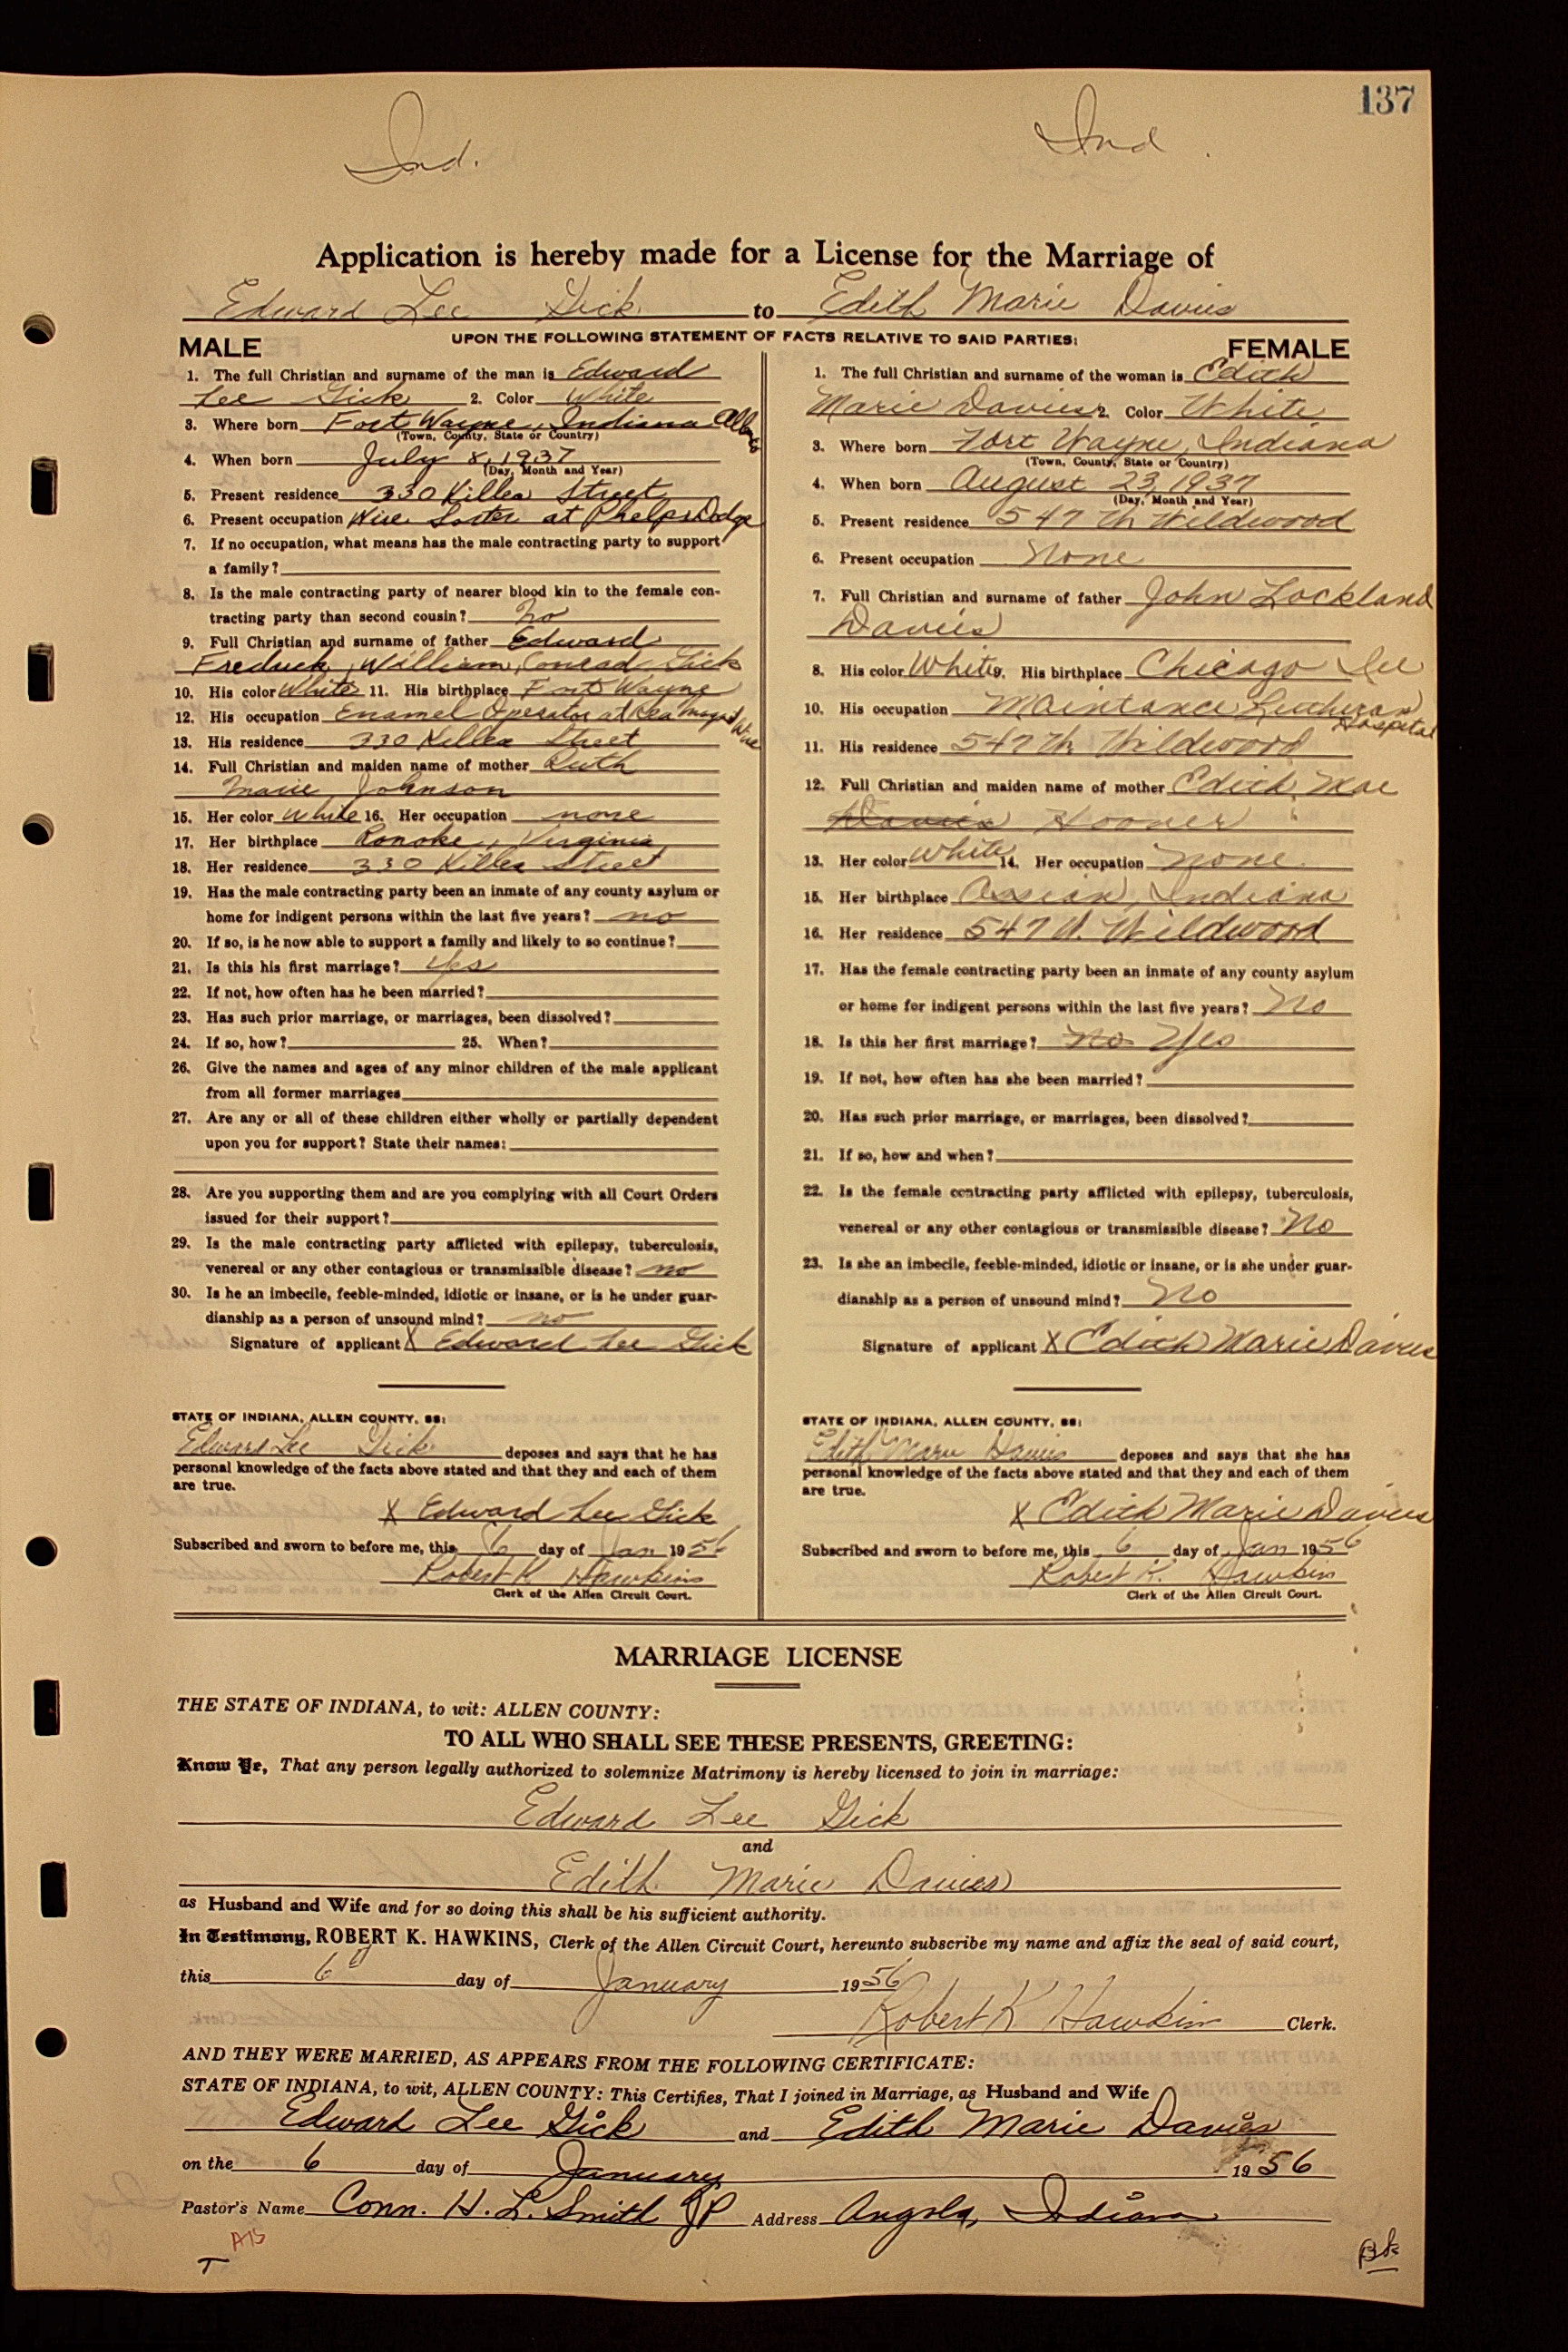 137
Ind. Ind
Application is hereby made for a License for the Marriage of
Edward Lee Gick to Edith Marie Davies
UPON THE FOLLOWING STATEMENT OF FACTS RELATIVE TO SAID PARTIES:
MALE
1. The full Christian and surname of the man is Edward
Lee Gick 2. Color White
3. Where born Fort Wayne, Indiana Allen
(Town, County, State or Country)
4. When born July 8, 1937
(Day, Month and Year)
5. Present residence 330 Killea Street
6. Present occupation Wire Sorter at Phelps Dodge
7. If no occupation, what means has the male contracting party to support
a family?
8. Is the male contracting party of nearer blood kin to the female con-
tracting party than second cousin? No
9. Full Christian and surname of father Edward
Fredrick William Conrad Gick
10. His color White 11. His birthplace Fort Wayne
12. His occupation Enamel Operator at Rea Magnet Wire
13. His residence 330 Killea Street
14. Full Christian and maiden name of mother Ruth
Marie Johnson
15. Her color White 16. Her occupation none
17. Her birthplace Ronoke, Virginia
18. Her residence 330 Killea Street
19. Has the male contracting party been an inmate of any county asylum or
home for indigent persons within the last five years? no
20. If so, is he now able to support a family and likely to so continue?
21. Is this his first marriage? Yes
22. If not, how often has he been married?
23. Has such prior marriage, or marriages, been dissolved?
24. If so, how? 25. When?
26. Give the names and ages of any minor children of the male applicant
from all former marriages
27. Are any or all of these children either wholly or partially dependent
upon you for support? State their names:
28. Are you supporting them and are you complying with all Court Orders
issued for their support?
29. Is the male contracting party afflicted with epilepsy, tuberculosis,
venereal or any other contagious or transmissible disease? no
30. Is he an imbecile, feeble-minded, idiotic or insane, or is he under guar-
dianship as a person of unsound mind? no
Signature of applicant X Edward Lee Gick
STATE OF INDIANA, ALLEN COUNTY, SS:
Edward Lee Gick deposes and says that he has
personal knowledge of the facts above stated and that they and each of them
are true.
X Edward Lee Gick
Subscribed and sworn to before me, this 6 day of Jan 1956
Robert K. Hawkins
Clerk of the Allen Circuit Court.
FEMALE
1. The full Christian and surname of the woman is Edith
Marie Davies 2. Color White
3. Where born Fort Wayne, Indiana
(Town, County, State or Country)
4. When born August 23, 1937
(Day, Month and Year)
5. Present residence 547 W. Wildwood
6. Present occupation None
7. Full Christian and surname of father John Lockland
Davies
8. His color White 9. His birthplace Chicago Ill
10. His occupation Maintance Lutheran Hospital
11. His residence 547 W. Wildwood
12. Full Christian and maiden name of mother Edith Mae
Davies Hooner
13. Her color White 14. Her occupation None
15. Her birthplace Indiana
16. Her residence 547 W. Wildwood
17. Has the female contracting party been an inmate of any county asylum
or home for indigent persons within the last five years? No
18. Is this her first marriage? No Yes
19. If not, how often has she been married?
20. Has such prior marriage, or marriages, been dissolved?
21. If so, how and when?
22. Is the female contracting party afflicted with epilepsy, tuberculosis,
venereal or any other contagious or transmissible disease? No
23. Is she an imbecile, feeble-minded, idiotic or insane, or is she under guar-
dianship as a person of unsound mind? No
Signature of applicant X Edith Marie Davies
STATE OF INDIANA, ALLEN COUNTY, SS:
Edith Marie Davies deposes and says that she has
personal knowledge of the facts above stated and that they and each of them
are true.
X Edith Marie Davies
Subscribed and sworn to before me, this 6 day of Jan 1956
Robert K. Hawkins
Clerk of the Allen Circuit Court.
MARRIAGE LICENSE
THE STATE OF INDIANA, to wit: ALLEN COUNTY:
TO ALL WHO SHALL SEE THESE PRESENTS, GREETING:
Know Ye, That any person legally authorized to solemnize Matrimony is hereby licensed to join in marriage:
Edward Lee Gick
and
Edith Marie Davies
as Husband and Wife and for so doing this shall be his sufficient authority.
In Testimony, ROBERT K. HAWKINS, Clerk of the Allen Circuit Court, hereunto subscribe my name and affix the seal of said court,
this 6 day of January 1956
Robert K Hawkins Clerk.
AND THEY WERE MARRIED, AS APPEARS FROM THE FOLLOWING CERTIFICATE:
STATE OF INDIANA, to wit, ALLEN COUNTY: This Certifies, That I joined in Marriage, as Husband and Wife
Edward Lee Gick and Edith Marie Davies
on the 6 day of January 1956
Pastor's Name Conn. H. L. Smith JP Address Angola, Indiana
T